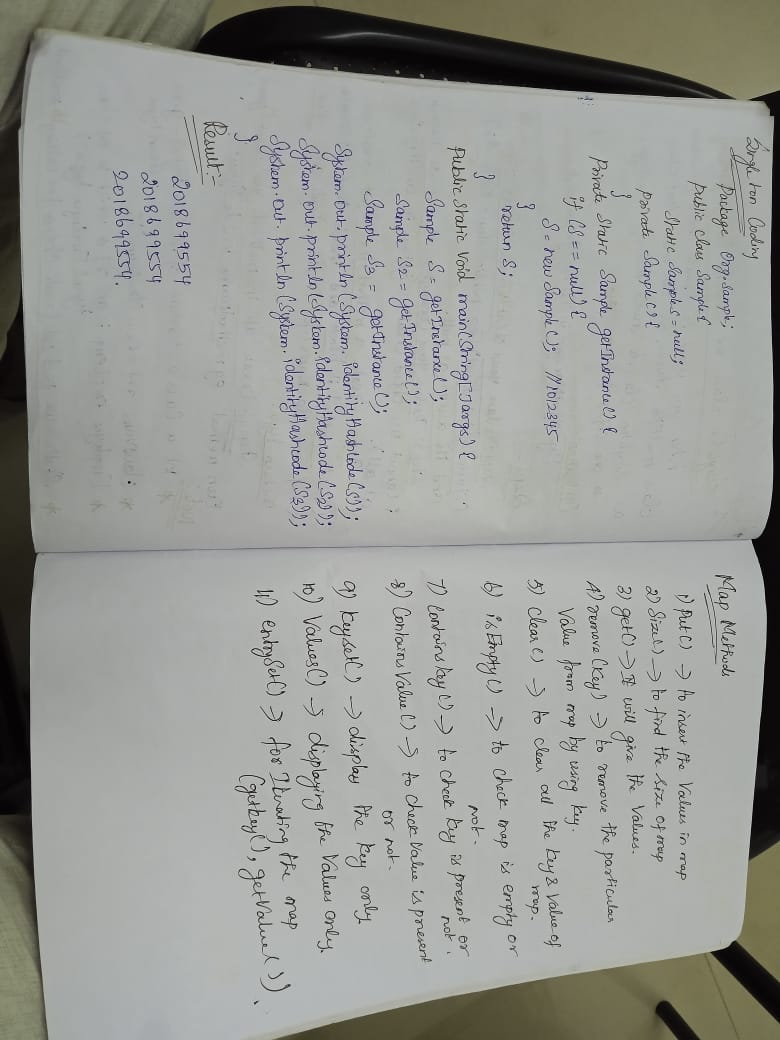 Single ton Coding
Package Org.Sample;
Public class Sample {
Static Sample s = null;
Private Sample () {
}
Private Static Sample getInstance() {
if (S == null) {
S = new Sample (); //1012345
}
return S;
}
Public Static Void main(String[] args) {
Sample S = getInstance();
Sample S2 = getInstance();
Sample S3 = getInstance();
System.out.println (System.identityHashCode (S));
System.out.println (System.identityHashcode (S2));
System.out.println (System.identityHashcode (S3));
}
Result:-
2018699554
2018699554
2018699554.
Map Methods
1) Put() → to insert the Values in map
2) Size() → to find the size of map
3) get() → It will give the Values.
4) remove (Key) → to remove the particular
Value from map by using key.
5) Clear() → to clear all the key & Value of
map.
6) isEmpty() → to check map is empty or
not.
7) Contains key () → to check key is present or
not.
8) Contains Value () → to check Value is present
or not.
9) Keyset() → display the key only
10) Values() → displaying the Values only.
11) entrySet() → for Iterating the map
(getkey(), getValue()).